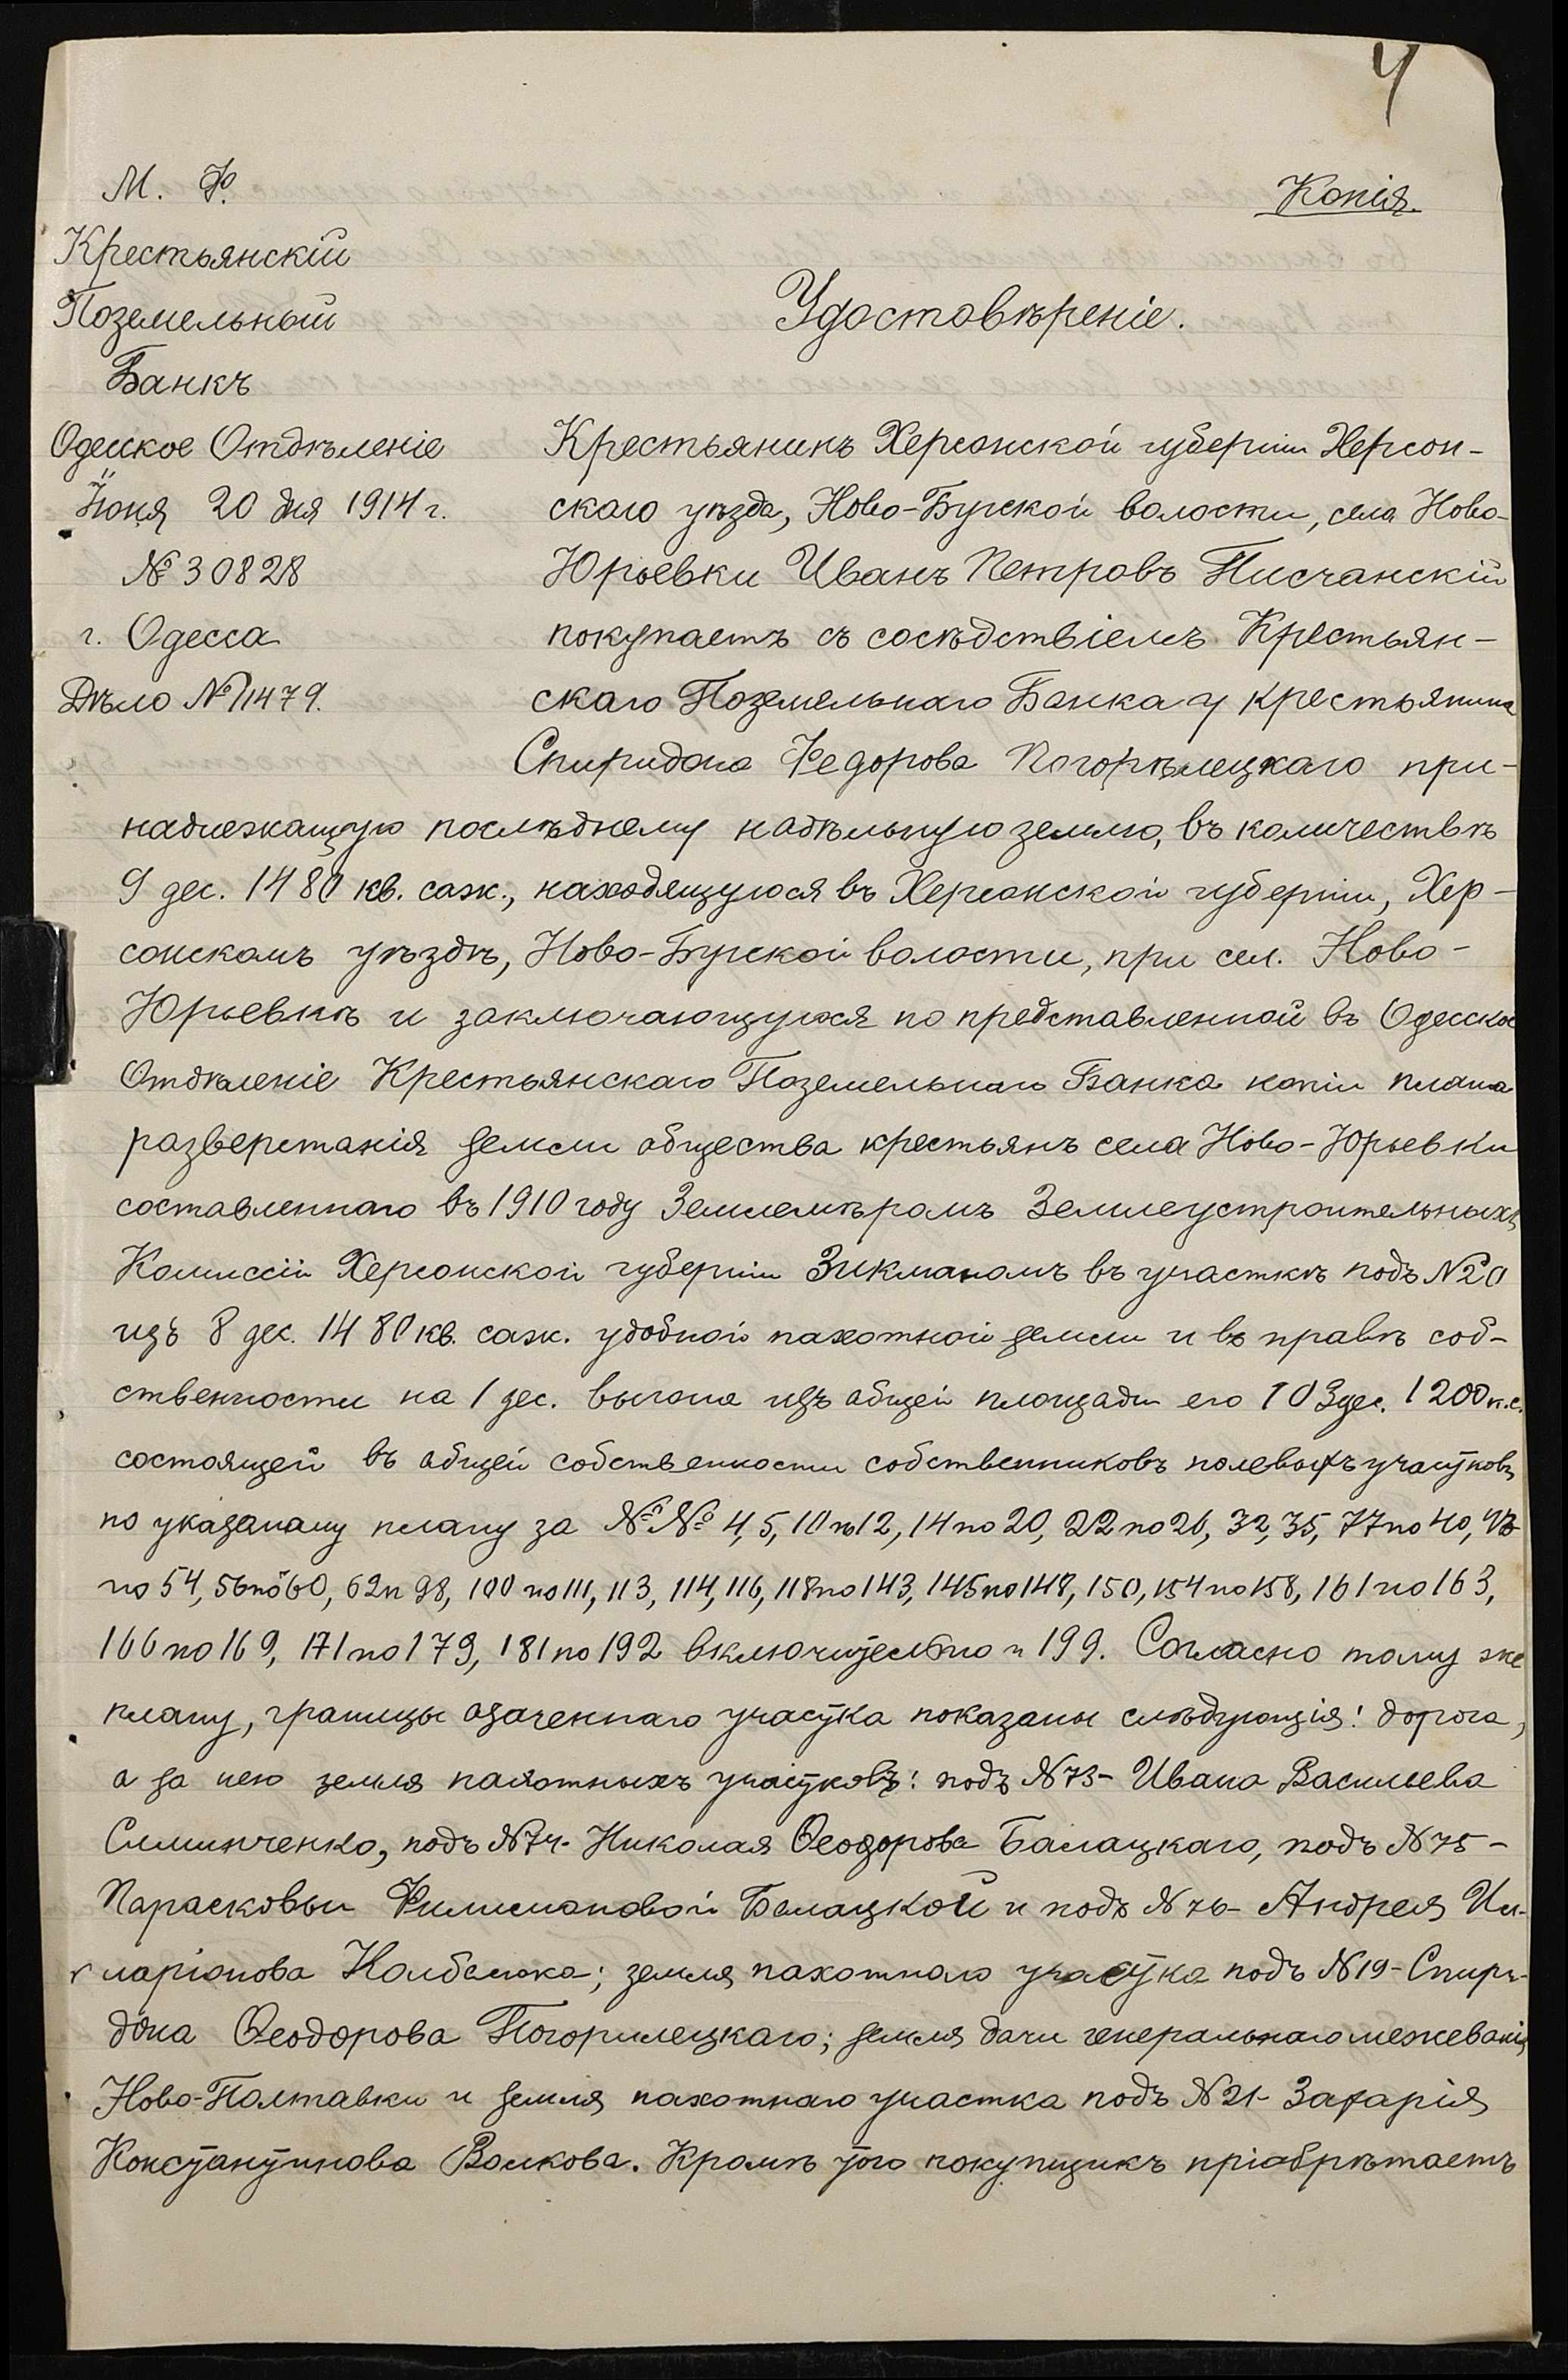 4
М. Ф.
Копія.
Крестьянскій
Поземельный
Банкъ
Одесское Отдѣленіе
Іюня 20 дня 1914 г.
№ 30828
г. Одесса
Дѣло № 11479.
Удостовѣреніе.
Крестьянинъ Херсонской губерніи Херсон-
скаго уѣзда, Ново-Бугской волости, села Ново-
Юрьевки Иванъ Петровъ Писчанскій
покупаетъ съ сосѣдствіемъ Крестьян-
скаго Поземельнаго Банка у крестьянина
Спиридона Федорова Погорѣлецкаго при-
надлежащую послѣднему надѣльную землю, въ количествѣ
9 дес. 1480 кв. саж., находящуюся въ Херсонской губерніи, Хер-
сонскомъ уѣздѣ, Ново-Бугской волости, при сел. Ново-
Юрьевкѣ и заключающуюся по представленной въ Одесское
Отдѣленіе Крестьянскаго Поземельнаго Банка копіи плана
разверстанія земли общества крестьянъ села Ново-Юрьевки
составленнаго въ 1910 году Землемѣромъ Землеустроительныхъ
Комиссій Херсонской губерніи Зикманомъ въ участкѣ подъ №20
изъ 8 дес. 1480 кв. саж. удобной пахотной земли и въ правѣ соб-
ственности на 1 дес. выгона изъ общей площади его 103 дес. 1200 к.с.
состоящей въ общей собственности собственниковъ полевыхъ участковъ
по указаному плану за №№ 4, 5, 10 по 12, 14 по 20, 22 по 26, 32, 35, 77 по 40,
по 54, 56 по 60, 62 п 98, 100 по 111, 113, 114, 116, 118 по 143, 145 по 148, 150, 154 по 158, 161 по 163,
166 по 169, 171 по 179, 181 по 192 включительно и 199. Согласно тому же
плану, границы означеннаго участка показаны слѣдующія: дорога,
а за нею земля пахотныхъ участковъ: подъ №73- Ивана Васильева
подъ №74- Николая Ѳеодорова Балацкаго, подъ №75-
Парасковьи Филимоновой Балацкой и подъ №76- Андрея Ил-
ларіонова Колбасюка; земля пахотнаго участка подъ №19- Спири-
дона Ѳеодорова Погорилецкаго; земля дачи генеральнаго межеванія
Ново-Полтавки и земля пахотнаго участка подъ №21- Захарія
Константинова Волкова. Кромѣ того покупщикъ пріобрѣтаетъ